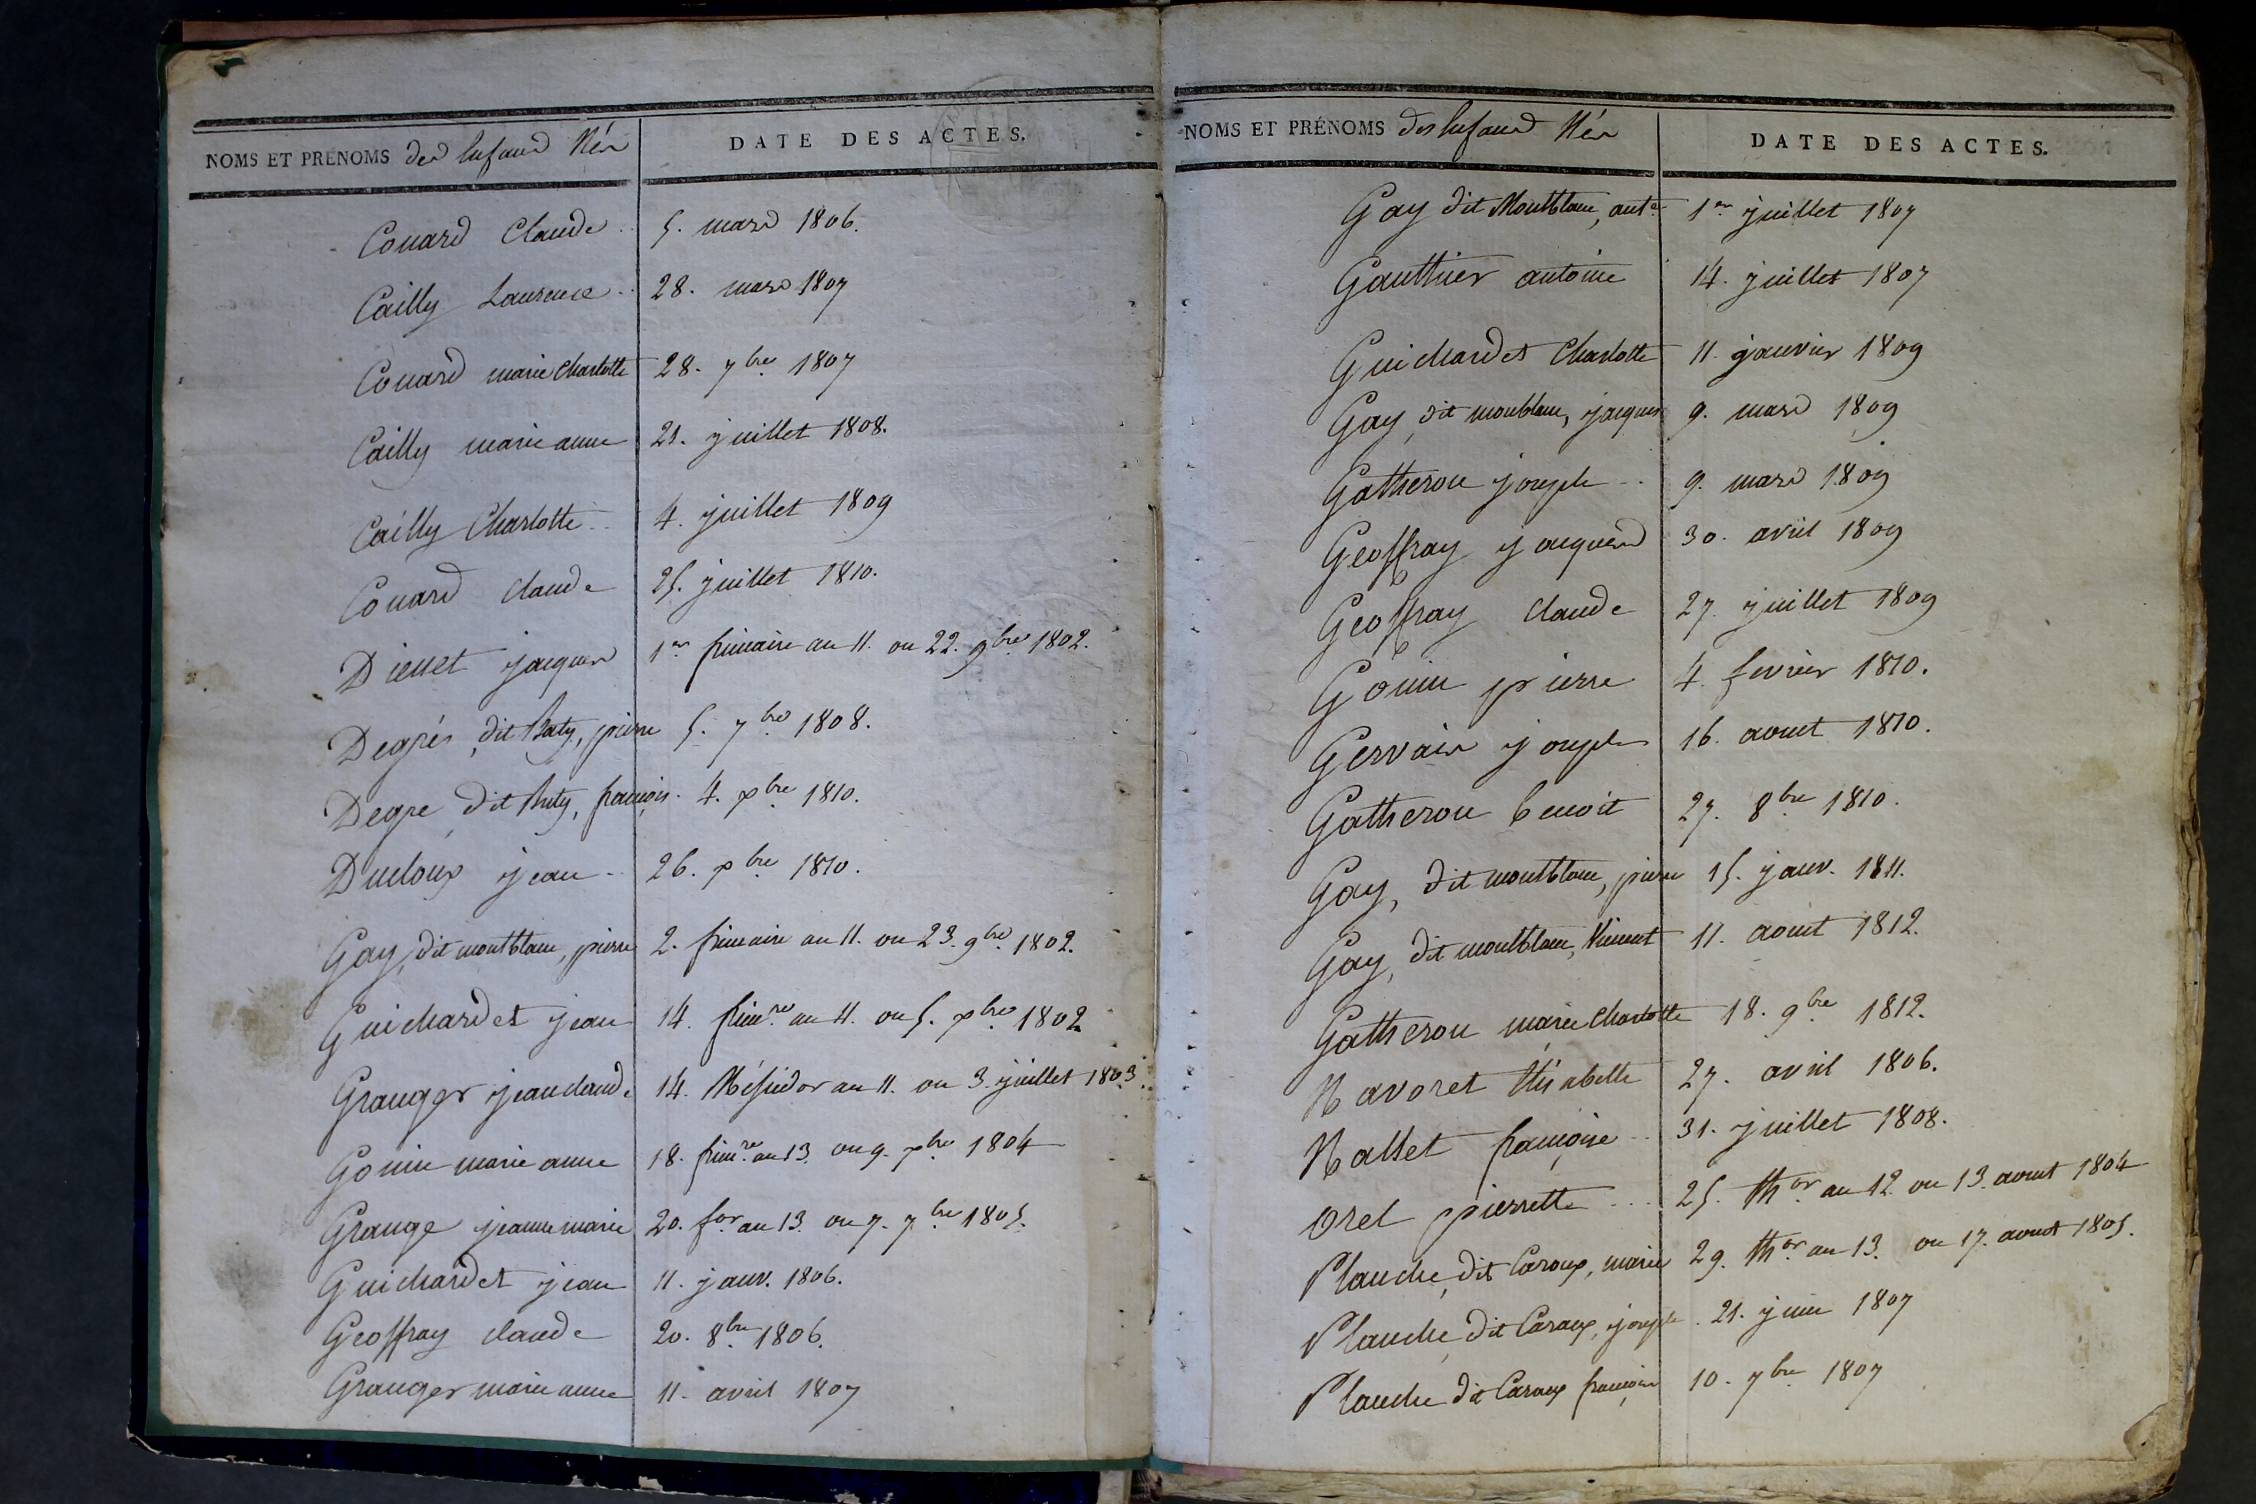 NOMS ET PRENOMS des Enfans Nés
DATE DES ACTES.
Couard Claude 5. mars 1806.
Cailly Laurence 28. mars 1807
Couard marie Charlotte 28. 7bre 1807
Cailly marie anne 21. juillet 1808.
Cailly Charlotte 4. juillet 1809
Couard claude 25. juillet 1810.
jacques 1er frimaire an 11. ou 22. 9bre 1802.
dit Buty, pierre 5. 7bre 1808.
dit Buty, françois. 4. xbre 1810.
Ducloux jean 26. xbre 1810.
Gay, dit montblanc, pierre 2. frimaire an 11. ou 23. 9bre 1802.
Guichardet jean 14. frimre an 11. ou 5. xbre 1802
Granger jean claude 14. Messidor an 11. ou 3. juillet 1803.
Gonin marie anne 18. frimre an 13. ou 9. xbre 1804
Grange jeanne marie 20. for an 13. ou 7. 7bre 1805.
Guichardet jean 11. janv. 1806.
Geoffray claude 20. 8bre 1806.
Granger marie anne 11. avril 1807
NOMS ET PRÉNOMS des Enfans Nés
DATE DES ACTES.
Gay dit Montblanc, ante 1er juillet 1807
Gauthier antoine 14. juillet 1807
Guichardet Charlotte 11. janvier 1809
Gay, dit monblanc, jacques 9. mars 1809
Gatheron joseph 9. mars 1809
Geoffray jacques 30. avril 1809
Geoffray claude 27. juillet 1809
Gonin pierre 4. fevrier 1810.
Gervais joseph 16. aoust 1810.
Gatheron benoit 27. 8bre 1810.
Gay, dit montblanc, pierre 15. janv. 1811.
Gay, dit montblanc, Vincent 11. aoust 1812.
Gatheron marie Charlotte 18. 9bre 1812.
Navoret 27. avril 1806.
françoise 31. juillet 1808.
Orel pierrette 25. thor an 12. ou 13. aoust 1804
Planche, dit Caroux, marie 29. thor an 13. ou 17. aoust 1805.
Planche, dit Caraux, joseph. 21. juin 1807
Planche dit Caraux françois 10. 7bre 1807